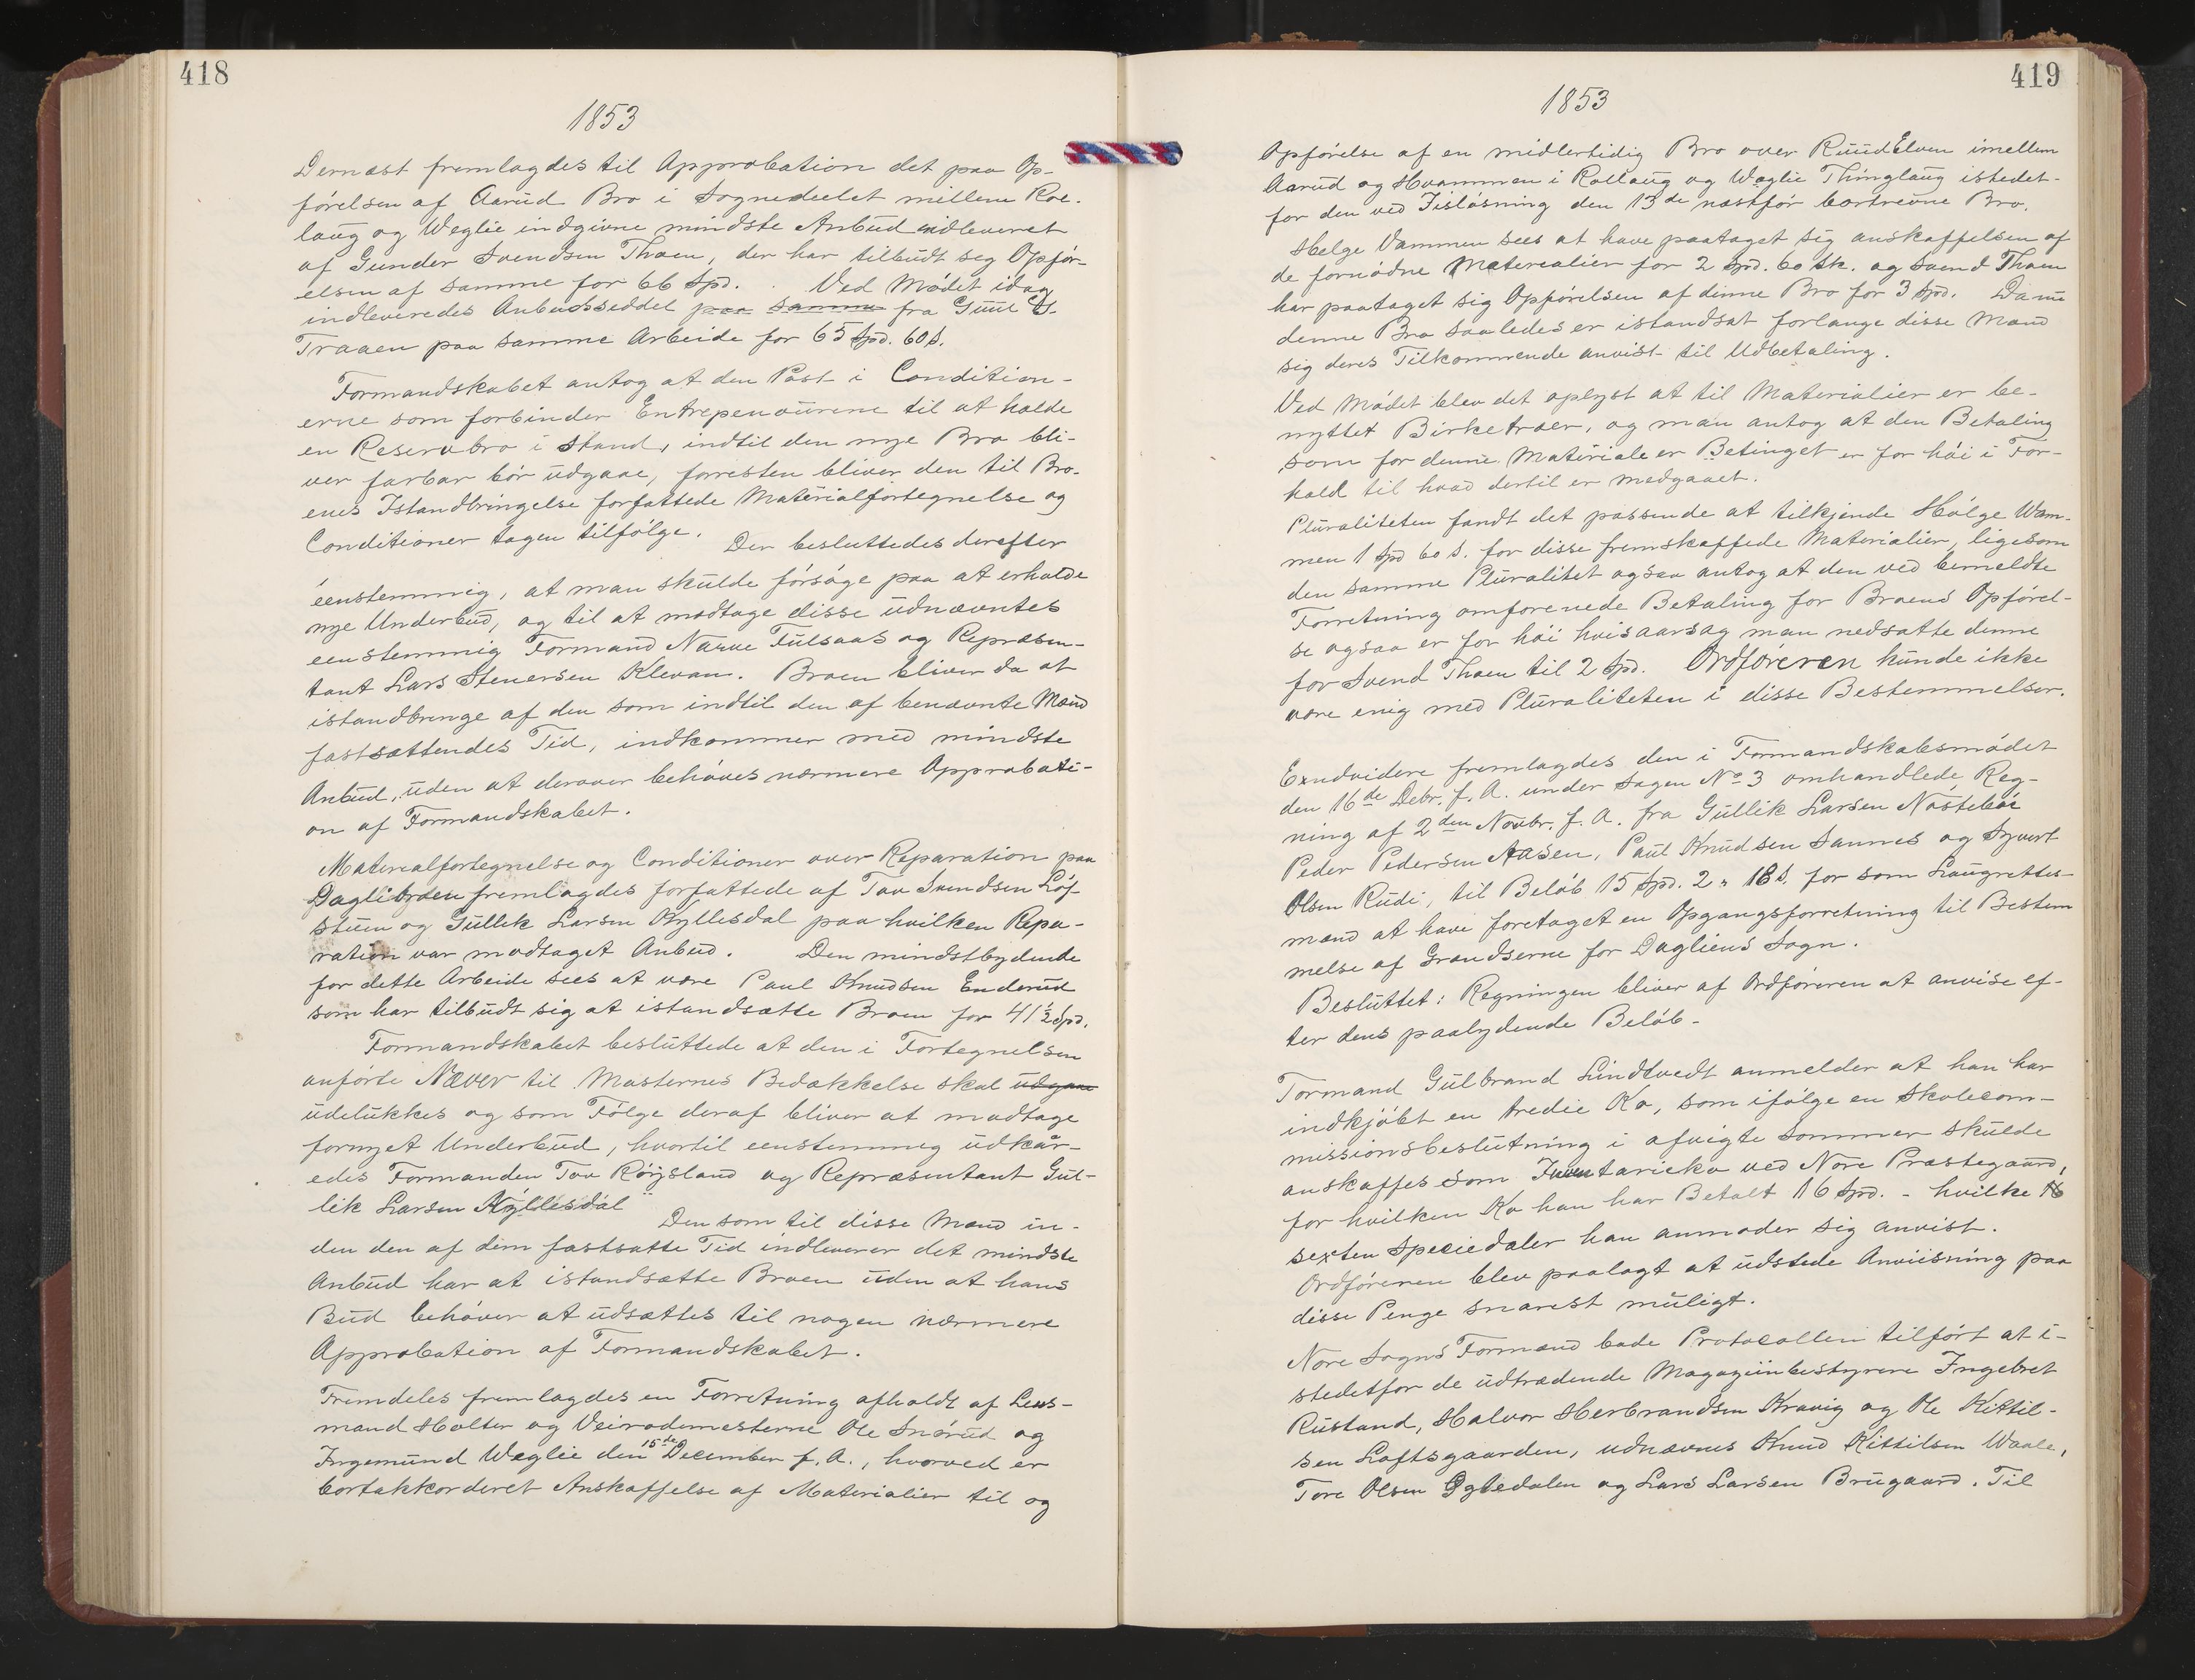 418
1853
Dernæst fremlagdes til Approbation det paa Op-
førelsen af Aarud Bro i Sognedeelet mellem Rol-
laug og Weglie indgivne mindste Anbud indleveret
af Gunder Svendsen Thoen, der har tilbudt seg Opfør-
elsen af samme for 66 Spd. . Ved Mødet idag
indleveredes Anbudsseddel paa samme fra Guul G.
Traaen paa samme Arbeide for 65 Spd. 60 s.
Formandskabet antog at den Post i Condition-
erne som forbinder Entrepenøurene til at holde
en Reservebro i Stand, indtil den nye Bro bli-
ver farbar bør udgaae, forresten bliver den til Bro-
ens Istandbringelse forfattede Materialfortegnelse og
Conditioner tagen tilfølge. Der besluttedes derefter
éenstemmig, at man skulde forsøge paa at erholde
nye Underbud, og til at modtage disse udnævntes
eenstemmig Formand Narve Fulsaas og Repræsen-
tant Lars Stenersen Klevan. Broen bliver da at
istandbringe af den som indtil den af benævnte Mænd
fastsættendes Tid, indkommer med mindste
Anbud, uden at derover behøves nærmere Approbati-
on af Formandskabet.
Materialfortegnelse og Conditioner over Reparation paa
Daglibroen fremlagdes forfattede af Tov Svendsen Løf-
stuen og Gullik Larsen Kyllesdal paa hvilken Repa-
ration var modtaget Anbud. Den mindstbydende
for dette Arbeide sees at være Paul Knudsen Enderud
som har tilbudt sig at istandsætte Broen for 41½ Spd.
Formandskabet besluttede at den i Fortegnelsen
anførte Næver til Masternes Bedækkelse skal udgaae
udelukkes og som Følge deraf bliver at modtage
fornyet Underbud, hvortil eenstemmig udkår-
edes Formanden Tov Røysland og Repræsentant Gul-
lik Larsen Kyllesdal Den som til disse Mænd in-
den den af dem fastsatte Tid indleverer det mindste
Anbud har at istandsætte Broen uden at hans
Bud behøver at udsættes til nogen nærmere
Approbation af Formandskabet.
Fremdeles fremlagdes en Forretning afholdt af Lens-
mand Holter og Veirodemesterne Ole Snérud og
Ingemund Weglie den 15de December f. A., hvorved er
bortakkorderet Anskaffelse af Materialier til og
419
1853
Opførelse af en midlertidig Bro over RuudElven imellem
Aarud og Hvammen i Rollaug og Weglie Thinglaug istedet-
for den ved Iisløsning den 13de næstfør bortrevne Bro.
Helge Vammen sees at have paataget sig anskaffelsen af
de fornødne Materealier for 2 Spd. 60 Sk. og Svend Thoen
har paataget sig Opførelsen af denne Bro for 3 Spd. Da nu
denne Bro saaledes er istandsat forlange disse Mænd
sig deres Tilkommende anvist til Udbetaling.
Ved Mødet blev det oplyst at til Materialier er be-
nyttet Birketræer, og man antog at den Betaling
som for denne Materiale er Betinget er for høi i For-
hold til hvad dertil er medgaaet.
Pluraliteten fandt det passende at tilkjende Hølge Wam-
men 1 Spd 60 s. for disse fremskaffede Materialier, ligesom
den samme Pluralitet ogsaa antog at den ved bemeldte
Forretning omforenede Betaling for Broens Opførel-
se ogsaa er for høi hvisaarsag man nedsatte denne
for Svend Thoen til 2 Spd. Ordføreren kunde ikke
være enig med Pluraliteten i disse Bestemmelser.
Exndvidere fremlagdes den i Formandskabsmødet
den 16de Debr. f. A. under Sagen No 3 omhandlede Reg-
ning af 2den Novbr. f. A. fra Gullik Larsen Nøstebøe
Peder Pedersen Aasen, Paul Knudsen Sannes og Syvert
Olsen Rudi, til Beløb 15 Spd. 2 " 18 s. for som Laugrettes-
mænd at have foretaget en Opgangsforretning til Bestem
melse af Grændserne for Dagliens Sogn.
Besluttet: Regningen bliver af Ordføreren at anvise ef-
ter dens paalydende Beløb-
Formand Gulbrand Lindtvedt anmelder at han har
indkjøbt en tredie Ko, som ifølge en Skolecom-
missionsbeslutning i afvigte Sommer skulde
anskaffes som Inventarieko ved Nore Præstegaard,
for hvilken Ko han har Betalt 16 Spd. - hvilke 16
sexten Speciedaler han anmoder sig anvist.
Ordføreren blev paalagt at udstede Anviisning paa
disse Penge snarest muligt.
Nore Sogns Formænd bade Protocollen tilført at i-
stedetfor de udtrædende Magaziinbestyrere Ingebret
Rustand, Halvor Herbrandsen Kravig og Ole Kittil-
sen Loftsgaarden, udnævnes Knud Kittilsen Waale,
Tore Olsen Bgtedalen og Lars Larsen Brugaard. Til